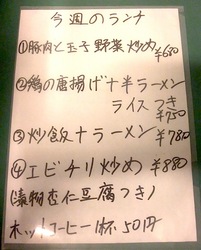 今週のランチ
①豚肉と玉子野菜炒め ¥680
②鶏の唐揚げ+半ラーメン
ライスつき
¥750
③炒飯+ラーメン ¥780
④エビチリ炒め ¥880
(漬物杏仁豆腐つき)
ホットコーヒー1杯50円